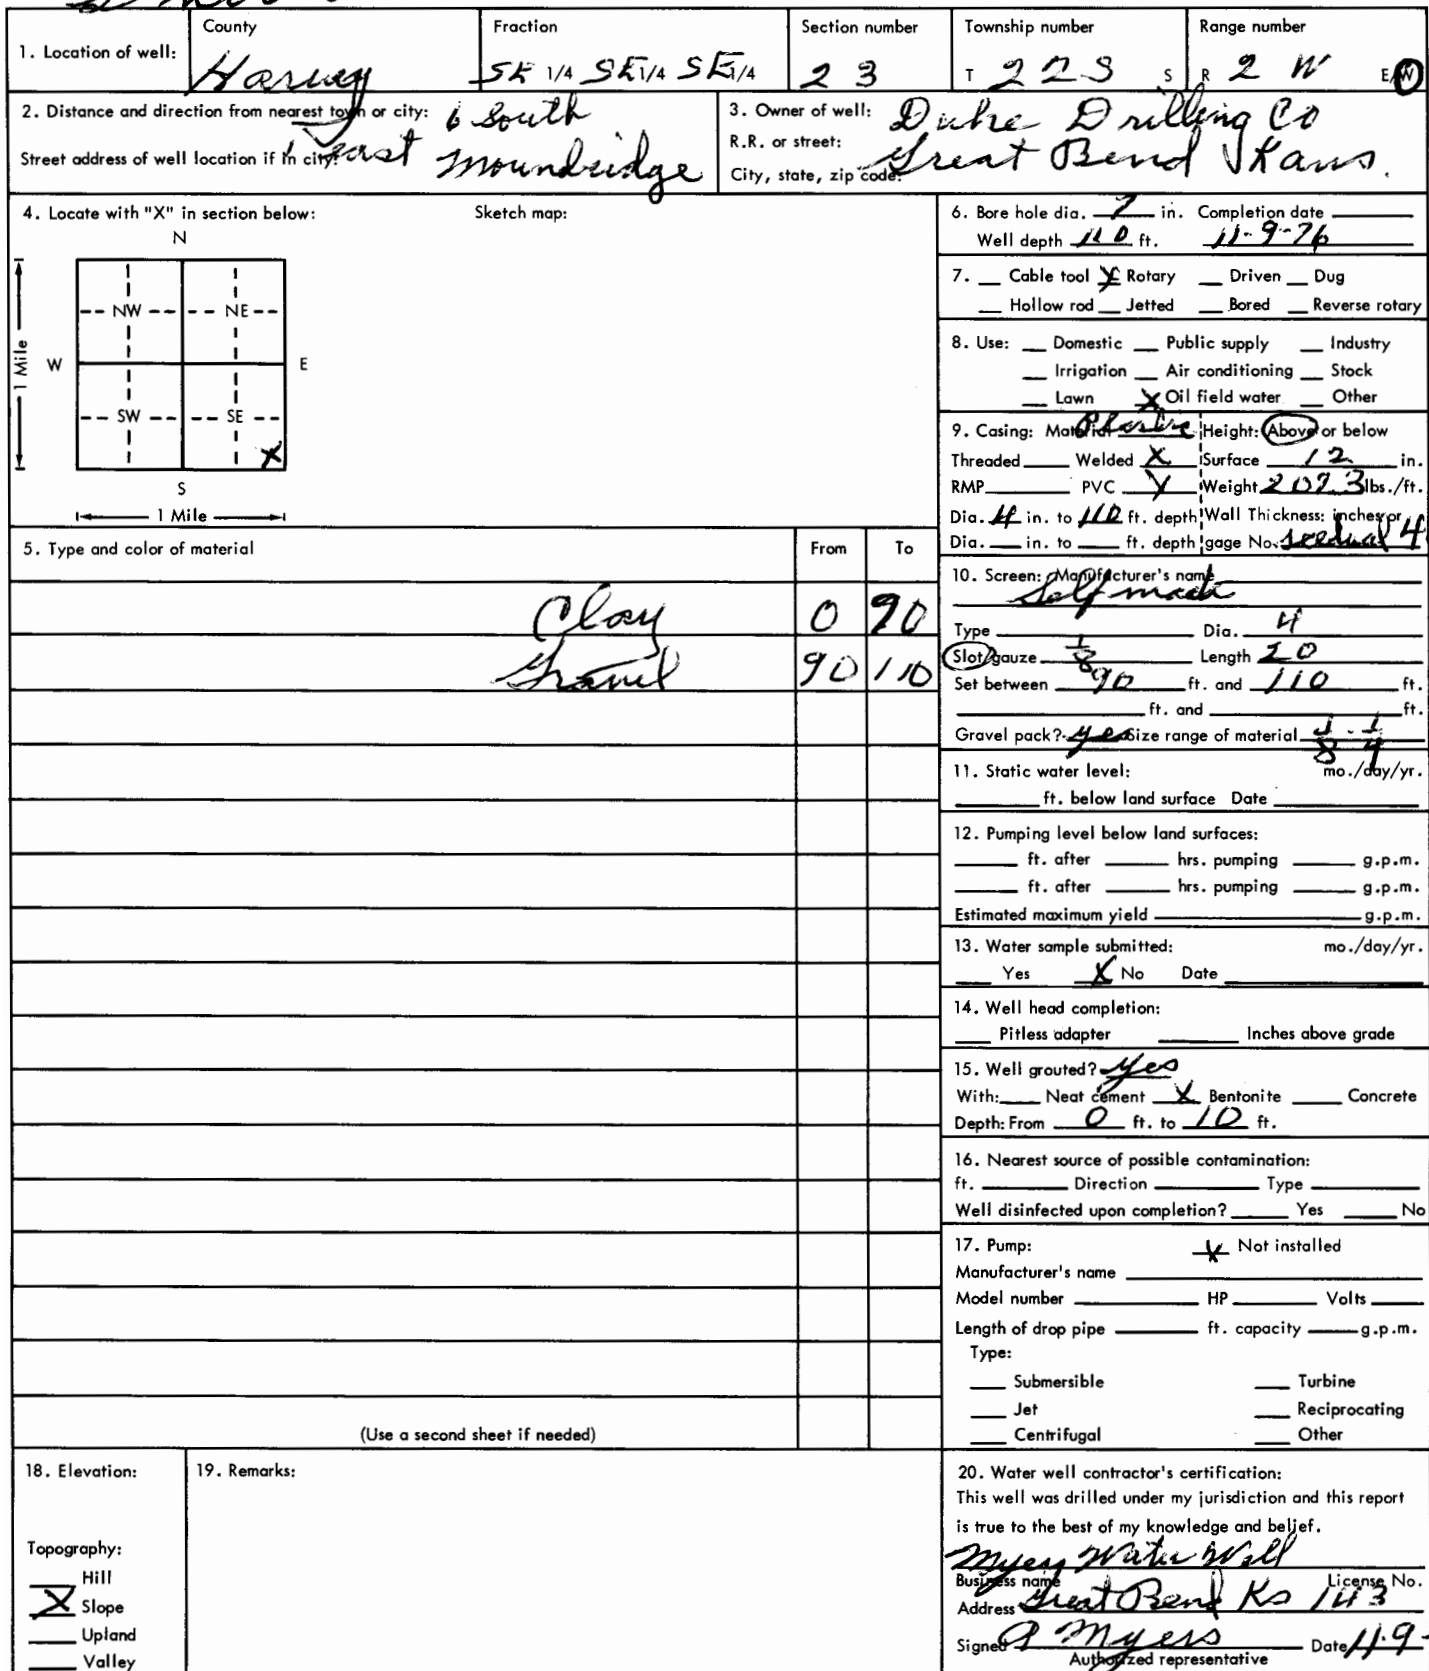 County Fraction Section number Township number Range number
1. Location of well: Harvey SE 1/4 SE 1/4 SE 1/4 23 T 22S S R 2 W E/W
2. Distance and direction from nearest town or city: 6 South
Street address of well location if in city: 1 east Moundridge
3. Owner of well: Duke Drilling Co
R.R. or street: Great Bend Kans.
City, state, zip code:
4. Locate with "X" in section below: Sketch map:
N
NW NE
W E
1 Mile
SW SE
X
S
1 Mile
6. Bore hole dia. 7 in. Completion date
Well depth 110 ft. 11-9-76
7. __ Cable tool X Rotary __ Driven __ Dug
__ Hollow rod __ Jetted __ Bored __ Reverse rotary
8. Use: __ Domestic __ Public supply __ Industry
__ Irrigation __ Air conditioning __ Stock
__ Lawn X Oil field water __ Other
9. Casing: Material Plastic Height: Above or below
Threaded ____ Welded X Surface 12 in.
RMP ____ PVC X Weight 207.3 lbs./ft.
Dia. 4 in. to 110 ft. depth Wall Thickness: inches or
Dia. __ in. to __ ft. depth gage No. 4
5. Type and color of material From To
Clay 0 90
Gravel 90 110
(Use a second sheet if needed)
10. Screen: Manufacturer's name
Self made
Type ____ Dia. 4
Slot/gauze 1/8 Length 20
Set between 90 ft. and 110 ft.
____ ft. and ____ ft.
Gravel pack? yes Size range of material 1/8 - 1/4
11. Static water level: mo./day/yr.
____ ft. below land surface Date ____
12. Pumping level below land surfaces:
____ ft. after ____ hrs. pumping ____ g.p.m.
____ ft. after ____ hrs. pumping ____ g.p.m.
Estimated maximum yield ____ g.p.m.
13. Water sample submitted: mo./day/yr.
__ Yes X No Date ____
14. Well head completion:
__ Pitless adapter ____ Inches above grade
15. Well grouted? yes
With: __ Neat cement X Bentonite __ Concrete
Depth: From 0 ft. to 10 ft.
16. Nearest source of possible contamination:
ft. ____ Direction ____ Type ____
Well disinfected upon completion? ____ Yes ____ No
17. Pump: X Not installed
Manufacturer's name ____
Model number ____ HP ____ Volts ____
Length of drop pipe ____ ft. capacity ____ g.p.m.
Type:
__ Submersible __ Turbine
__ Jet __ Reciprocating
__ Centrifugal __ Other
18. Elevation:
Topography:
__ Hill
X Slope
__ Upland
__ Valley
19. Remarks:
20. Water well contractor's certification:
This well was drilled under my jurisdiction and this report
is true to the best of my knowledge and belief.
Myers Water Well
Business name License No.
Address Great Bend Ks 143
Signed P Myers Date 11-9-
Authorized representative